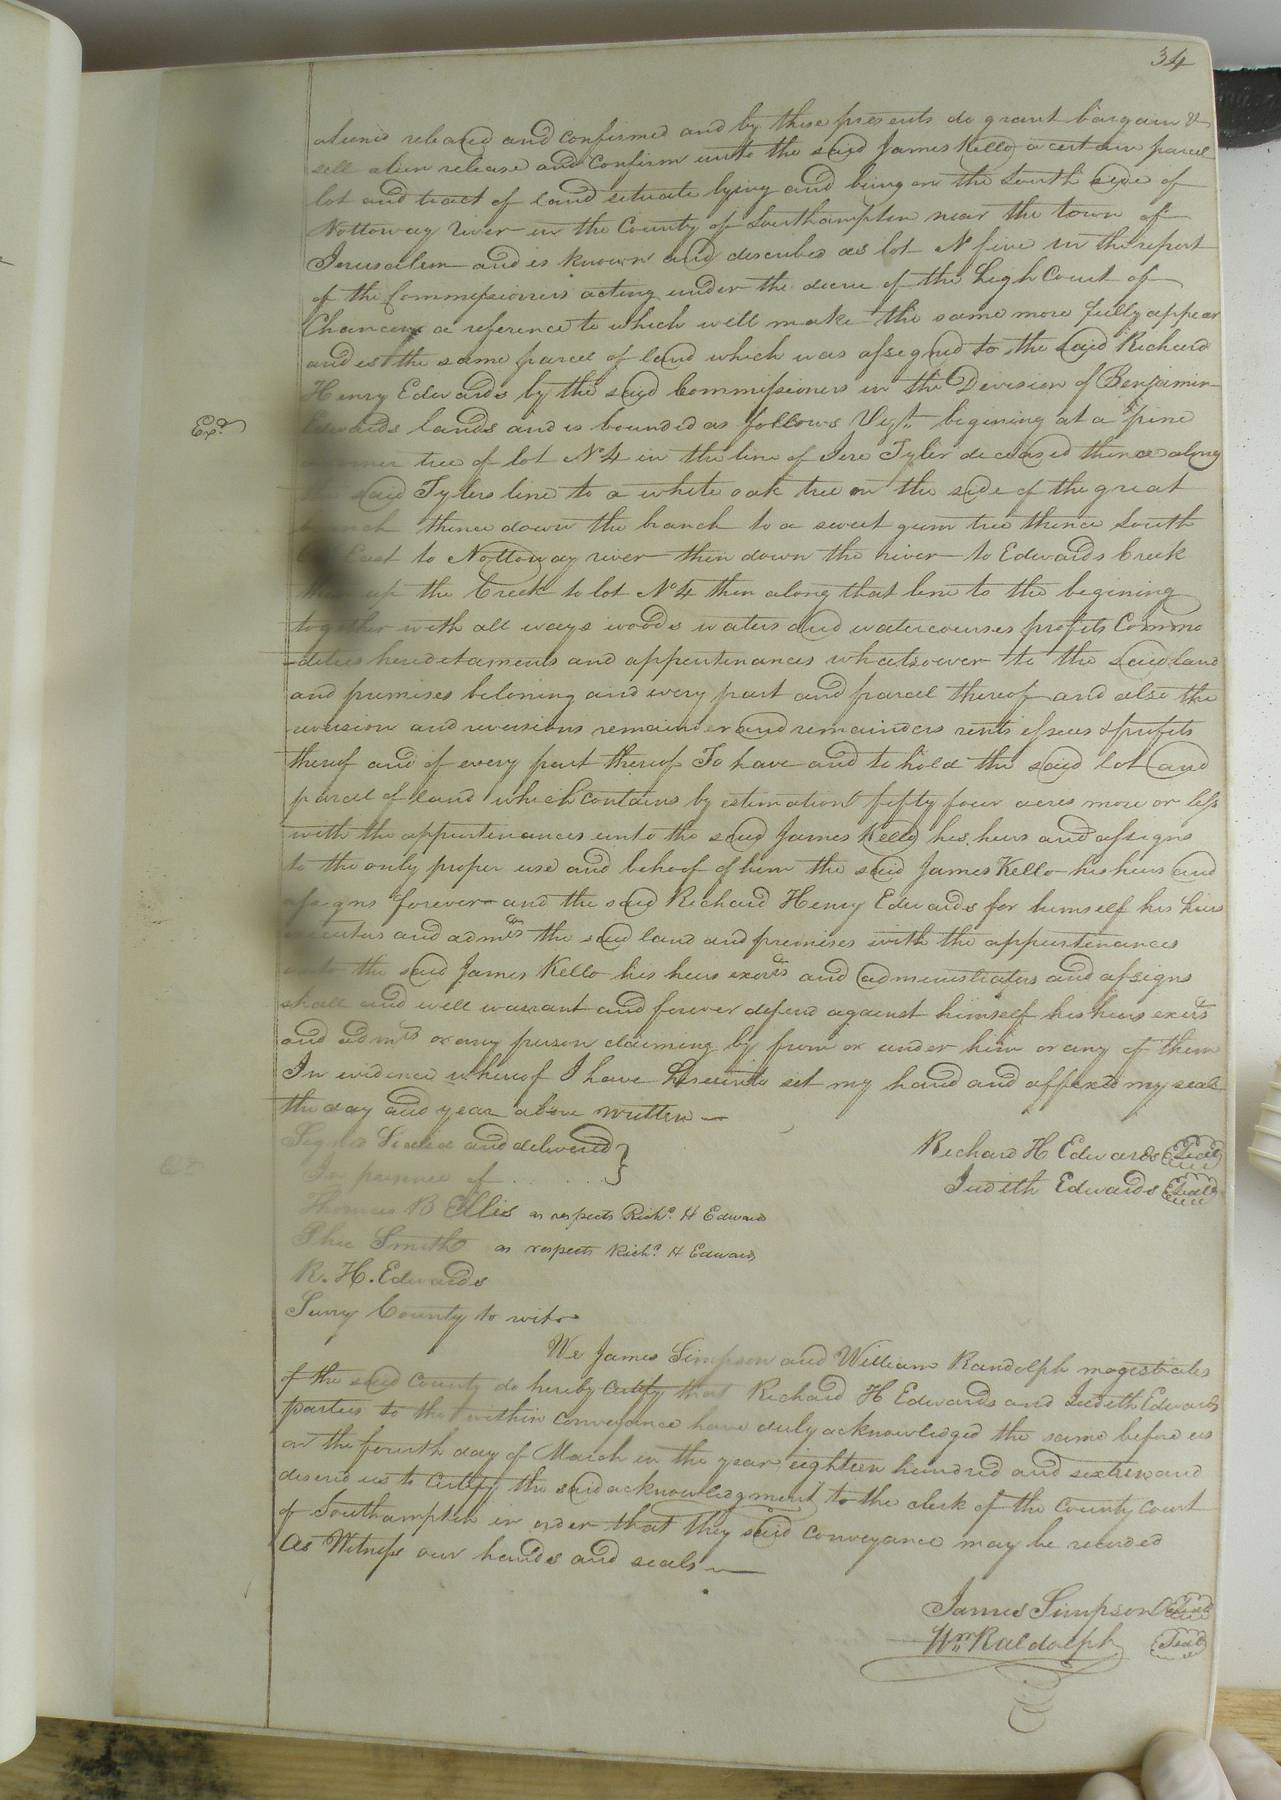 34
aliened released and confirmed and by these presents do grant bargain &
sell alien release and confirm unto the said James Kello a certain parcel
lot and tract of land situate lying and being on the South side of
Nottoway river in the County of Southampton near the town of
Jerusalem and is known and described as lot No five in the report
of the Commissioners acting under the decree of the high Court of
Chancery a reference to which will make the same more fully appear
and is the same parcel of land which was assigned to the said Richard
Henry Edwards by the said Commissioners in the Division of Benjamin
Exd
Edwards lands and is bounded as follows begining at a pine
corner tree of lot No 4 in the line of Jere Tyler deceased thence along
the said Tylers line to a white oak tree on the side of the great
branch thence down the branch to a sweet gum tree thence South
East to Nottoway river then down the river to Edwards Creek
then up the Creek to lot No 4 then along that line to the begining
together with all ways woods waters and watercourses profits Commo
dities hereditaments and appurtenances whatsoever to the said land
and premises beloning and every part and parcel thereof and also the
reversion and reversions remainder and remainders rents issues & profits
thereof and of every part thereof To have and to hold the said lot and
parcel of land which contains by estimation fifty four acres more or less
with the appurtenances unto the said James Kello his heirs and assigns
to the only proper use and behoof of him the said James Kello his heirs and
assigns forever and the said Richard Henry Edwards for himself his heirs
executors and admrs the said land and premises with the appurtenances
unto the said James Kello his heirs exors and administrators and assigns
shall and will warrant and forever defend against himself his heirs exors
and admrs or any person claiming by from or under him or any of them
In evidence whereof I have hereunto set my hand and affixed my seal
the day and year above written
Signed Sealed and delivered }
In presence of . . . . . }
Richard H Edwards Seal
Judith Edwards Seal
Thomas B Ellis as respects Richd H Edwards
Smith as respects Richd H Edwards
R. H. Edwards
Surry County to wit
We James Simpson and William Randolph magistrates
of the said County do hereby certify that Richard H Edwards and Judith Edwards
parties to the within conveyance have duly acknowledged the same before us
on the fourth day of March in the year eighteen hundred and sixteen and
desired us to certify the said acknowledgment to the clerk of the County Court
of Southampton in order that they said conveyance may be recorded
As Witness our hands and seals
James Simpson Seal
Wm Raldolph Seal